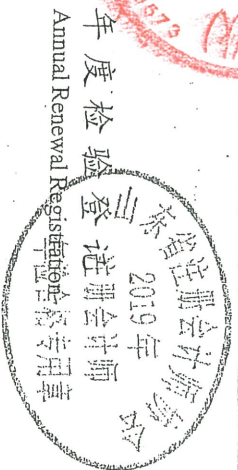 年度检验登记
Annual Renewal Registration
省注册会计师
2019年
注册会计师
年检合格专用章